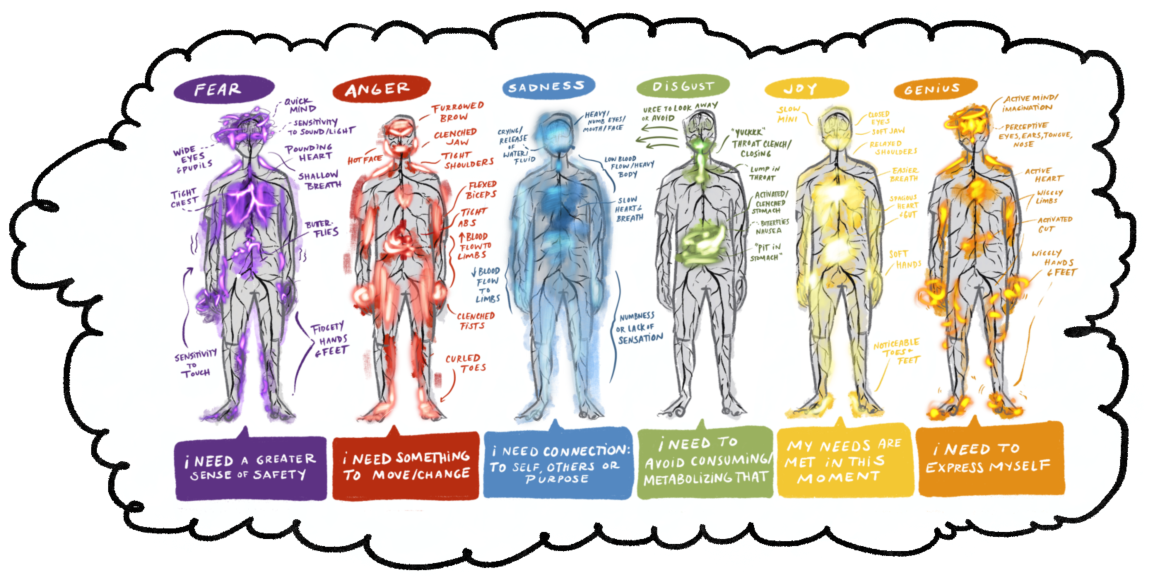 FEAR
QUICK
MIND
SENSITIVITY
TO SOUND/LIGHT
WIDE
EYES
& PUPILS
POUNDING
HEART
SHALLOW
BREATH
TIGHT
CHEST
BUTTER-
FLIES
SENSITIVITY
TO
TOUCH
FIDGETY
HANDS
& FEET
I NEED A GREATER
SENSE OF SAFETY
ANGER
FURROWED
BROW
CLENCHED
JAW
HOT FACE
TIGHT
SHOULDERS
FLEXED
BICEPS
TIGHT
ABS
↑ BLOOD
FLOW TO
LIMBS
CLENCHED
FISTS
CURLED
TOES
I NEED SOMETHING
TO MOVE/CHANGE
SADNESS
HEAVY/
NUMB EYES/
MOUTH/FACE
CRYING/
RELEASE
OF
WATER/
FLUID
LOW BLOOD
FLOW/HEAVY
BODY
SLOW
HEART &
BREATH
↓ BLOOD
FLOW
TO
LIMBS
NUMBNESS
OR LACK OF
SENSATION
I NEED CONNECTION:
TO SELF, OTHERS OR
PURPOSE
DISGUST
URGE TO LOOK AWAY
OR AVOID
"YUCKK"
THROAT CLENCH/
CLOSING
LUMP IN
THROAT
ACTIVATED/
CLENCHED
STOMACH
NAUSEA
"PIT IN
STOMACH"
I NEED TO
AVOID CONSUMING/
METABOLIZING THAT
JOY
SLOW
MIND
CLOSED
EYES
SOFT JAW
RELAXED
SHOULDERS
EASIER
BREATH
SPACIOUS
HEART
& GUT
SOFT
HANDS
NOTICEABLE
TOES &
FEET
MY NEEDS ARE
MET IN THIS
MOMENT
GENIUS
ACTIVE MIND/
IMAGINATION
PERCEPTIVE
EYES, EARS, TONGUE,
NOSE
ACTIVE
HEART
WIGGLY
LIMBS
ACTIVATED
GUT
WIGGLY
HANDS
& FEET
I NEED TO
EXPRESS MYSELF